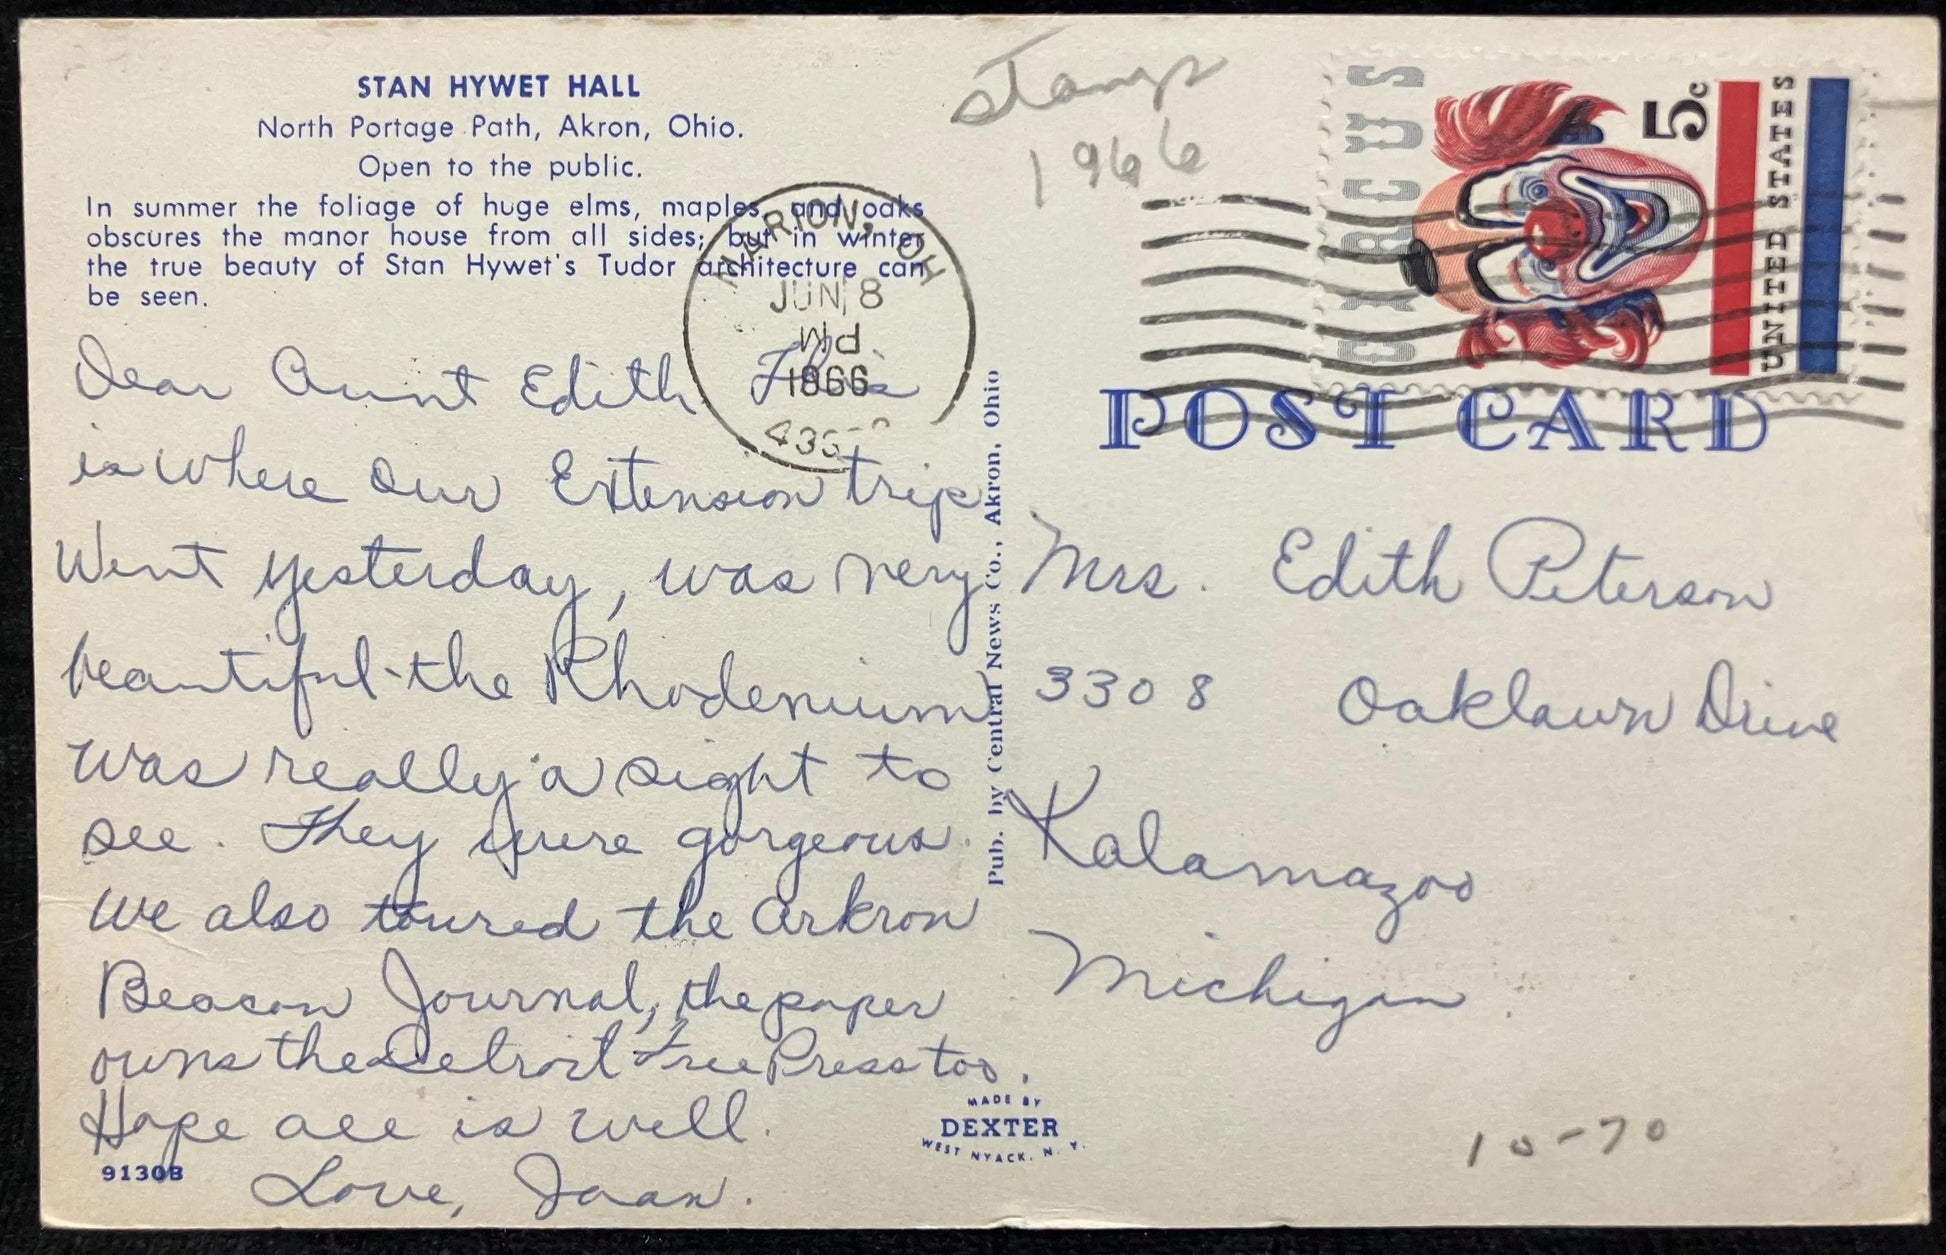 STAN HYWET HALL
North Portage Path, Akron, Ohio.
Open to the public.
In summer the foliage of huge elms, maples, and oaks
obscures the manor house from all sides; but in winter
the true beauty of Stan Hywet's Tudor architecture can
be seen.
Dear Aunt Edith This
is where our Extension trip
Went yesterday, was very
beautiful - the Rhodenium
was really a sight to
see. They were gorgeous.
We also toured the Arkron
Beacon Journal, the paper
owns the Detroit Free Press too.
Hope all is well.
Love, Joan.
9130B
MARION, OH
JUN 8
PM
1966
Pub. by Central News Co., Akron, Ohio
MADE BY
DEXTER
WEST NYACK, N. Y.
Stamps
1966
CIRCUS
5c
UNITED STATES
POST CARD
Mrs. Edith Peterson
3308 Oaklawn Drive
Kalamazoo
Michigan
10-70